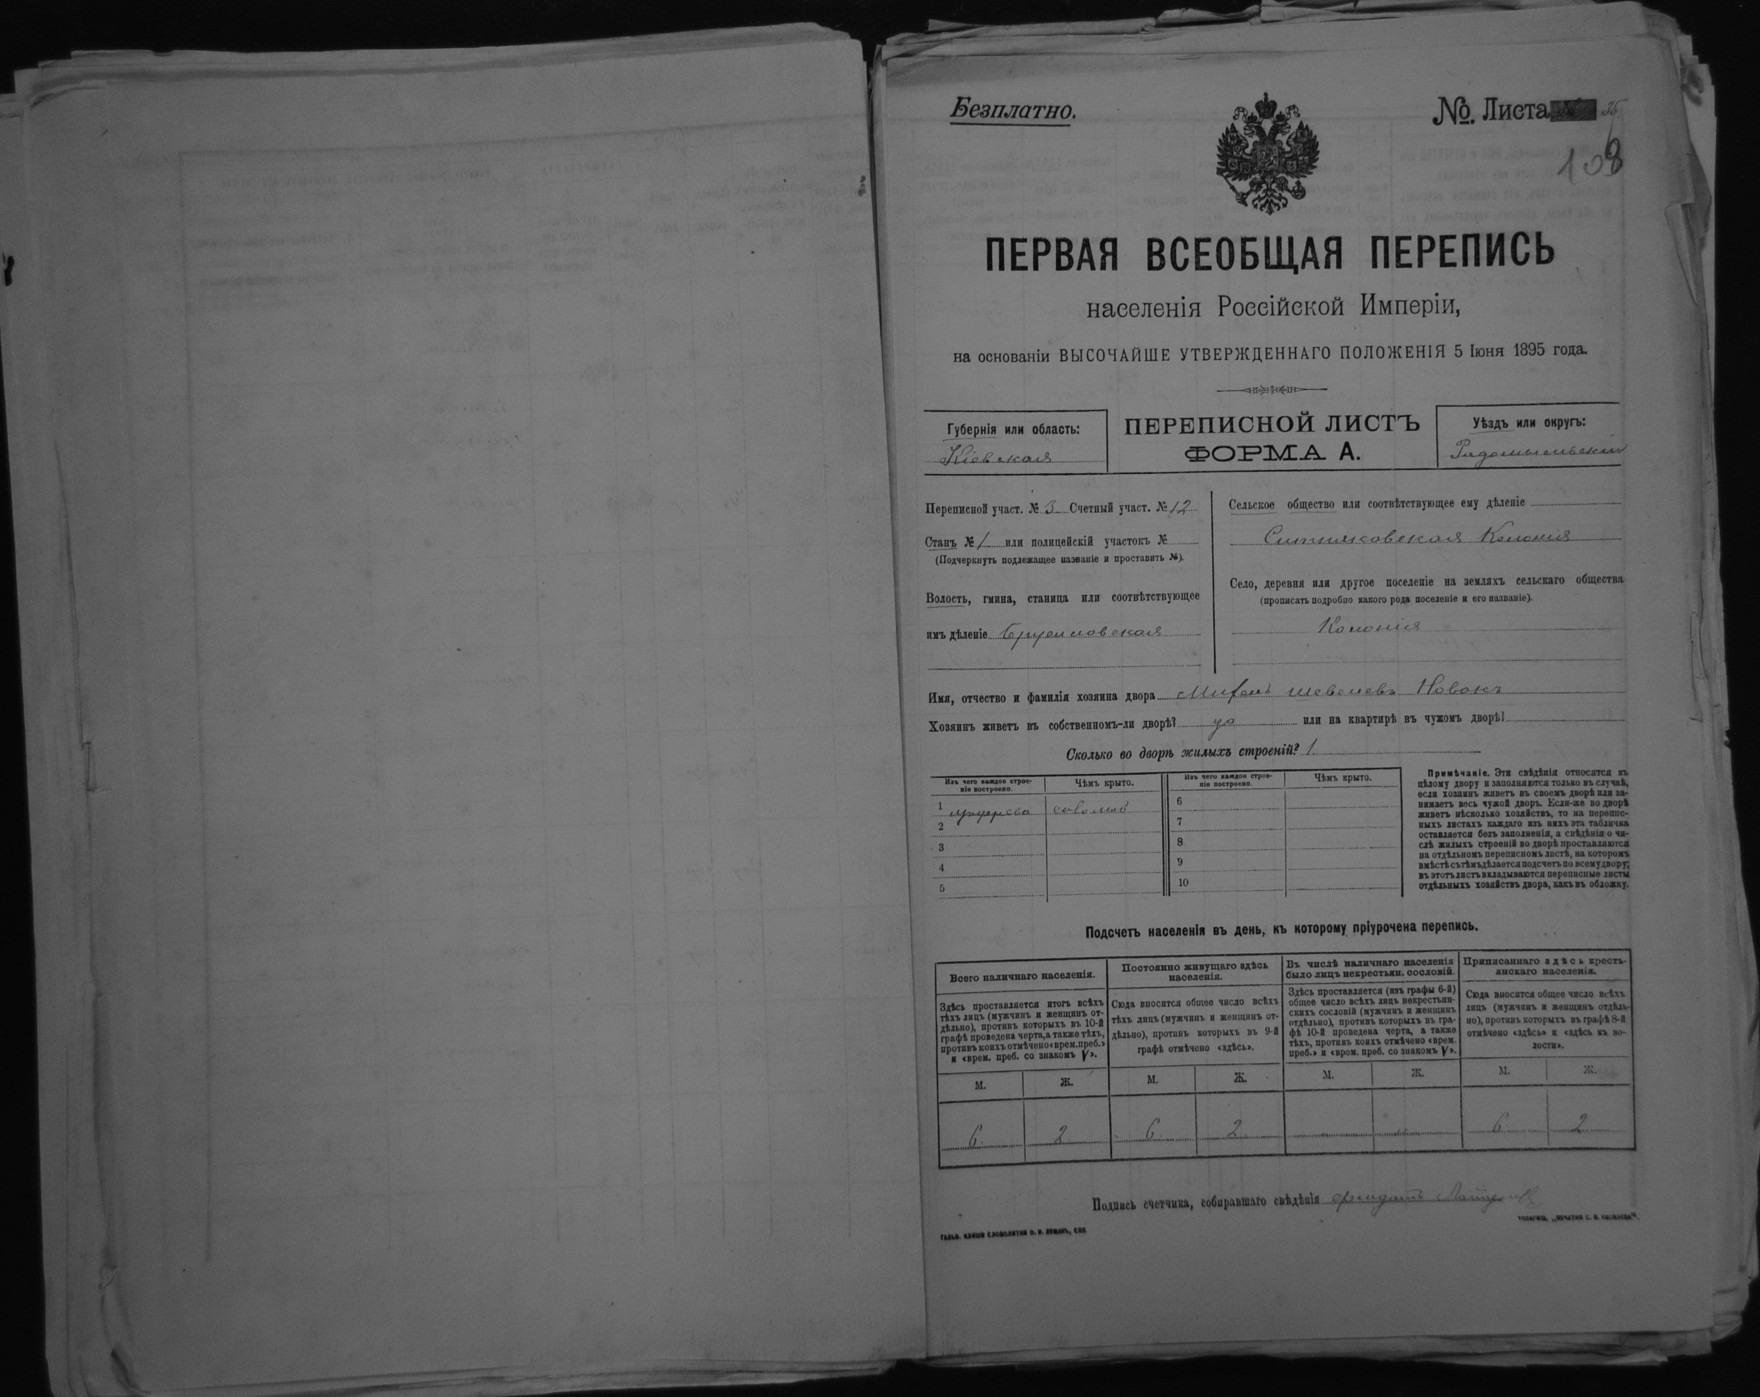 Безплатно.
№ Листа 35
108
ПЕРВАЯ ВСЕОБЩАЯ ПЕРЕПИСЬ
населенія Россійской Имперіи,
на основаніи ВЫСОЧАЙШЕ УТВЕРЖДЕННАГО ПОЛОЖЕНІЯ 5 Іюня 1895 года.
Губернія или область:
Кіевская
ПЕРЕПИСНОЙ ЛИСТЪ
ФОРМА А.
Уѣздъ или округъ:
Радомысльскій
Переписной участ. № 3 Счетный участ. № 12
Станъ № 1 или полицейскій участокъ №
(Подчеркнуть подлежащее названіе и проставить №).
Волость, гмина, станица или соотвѣтствующее
имъ дѣленіе Брусиловская
Сельское общество или соотвѣтствующее ему дѣленіе
Ситняковская Колонія
Село, деревня или другое поселеніе на земляхъ сельскаго общества
(прописать подробно какого рода поселеніе и его названіе).
Колонія
Имя, отчество и фамилія хозяина двора
Хозяинъ живетъ въ собственномъ-ли дворѣ? да или на квартирѣ въ чужомъ дворѣ?
Сколько во дворѣ жилыхъ строеній? 1
Изъ чего каждое строе-
ніе построено.
Чѣмъ крыто.
Изъ чего каждое строе-
ніе построено.
Чѣмъ крыто.
1 издерева соломой
2
3
4
5
6
7
8
9
10
Примѣчаніе. Эти свѣдѣнія относятся къ
цѣлому двору и заполняются только въ случаѣ,
если хозяинъ живетъ въ своемъ дворѣ или за-
нимаетъ весь чужой дворъ. Если-же во дворѣ
живетъ нѣсколько хозяйствъ, то на перепис-
ныхъ листахъ каждаго изъ нихъ эта табличка
оставляется безъ заполненія, а свѣдѣнія о чи-
слѣ жилыхъ строеній во дворѣ проставляются
на отдѣльномъ переписномъ листѣ, на которомъ
вмѣстѣ съ тѣмъ дѣлается подсчетъ по всему двору;
въ этотъ листъ вкладываются переписные листы
отдѣльныхъ хозяйствъ двора, какъ въ обложку.
Подсчетъ населенія въ день, къ которому пріурочена перепись.
Всего наличнаго населенія.
Здѣсь проставляется итогъ всѣхъ
тѣхъ лицъ (мужчинъ и женщинъ от-
дѣльно), противъ которыхъ въ 10-й
графѣ проведена черта, а также тѣхъ,
противъ коихъ отмѣчено «врем. преб.»
и «врем. преб. со знакомъ V».
Постоянно живущаго здѣсь
населенія.
Сюда вносится общее число всѣхъ
тѣхъ лицъ (мужчинъ и женщинъ от-
дѣльно), противъ которыхъ въ 9-й
графѣ отмѣчено «здѣсь».
Въ числѣ наличнаго населенія
было лицъ некрестьян. сословій.
Здѣсь проставляется (изъ графы 6-й)
общее число всѣхъ лицъ некрестьян-
скихъ сословій (мужчинъ и женщинъ
отдѣльно), противъ которыхъ въ гра-
фѣ 10-й проведена черта, а также
тѣхъ, противъ коихъ отмѣчено «врем.
преб.» и «врем. преб. со знакомъ V».
Приписаннаго здѣсь кресть-
янскаго населенія.
Сюда вносится общее число всѣхъ
лицъ (мужчинъ и женщинъ отдѣль-
но), противъ которыхъ въ графѣ 8-й
отмѣчено «здѣсь» и «здѣсь къ во-
лости».
М. Ж. М. Ж. М. Ж. М. Ж.
6 2 6 2 6 2
Подпись счетчика, собиравшаго свѣдѣнія